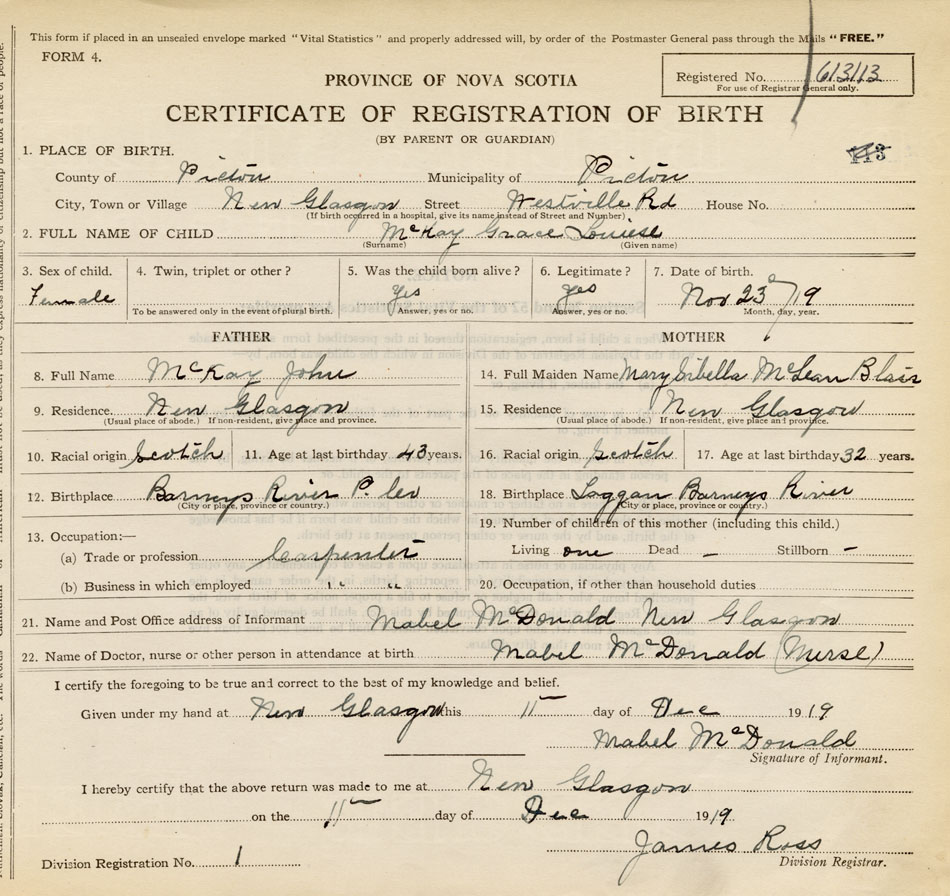 This form if placed in an unsealed envelope marked "Vital Statistics" and properly addressed will, by order of the Postmaster General pass through the Mails "FREE."
FORM 4.
Registered No. 613113
For use of Registrar General only.
PROVINCE OF NOVA SCOTIA
CERTIFICATE OF REGISTRATION OF BIRTH
(BY PARENT OR GUARDIAN)
1. PLACE OF BIRTH.
County of Pictou Municipality of Pictou
City, Town or Village New Glasgow Street Westville Rd House No.
(If birth occurred in a hospital, give its name instead of Street and Number)
2. FULL NAME OF CHILD McKay Grace Louise
(Surname) (Given name)
3. Sex of child. 4. Twin, triplet or other? 5. Was the child born alive? 6. Legitimate? 7. Date of birth.
Female Yes Yes Nov 23 /19
To be answered only in the event of plural birth. Answer, yes or no. Answer, yes or no. Month, day, year.
FATHER MOTHER
8. Full Name McKay John 14. Full Maiden Name Mary Sibella McLean Blair
9. Residence. New Glasgow 15. Residence New Glasgow
(Usual place of abode.) If non-resident, give place and province. (Usual place of abode.) If non-resident, give place and province.
10. Racial origin Scotch 11. Age at last birthday 43 years. 16. Racial origin Scotch 17. Age at last birthday 32 years.
12. Birthplace Barneys River P. 18. Birthplace Loggan Barneys River
(City or place, province or country.) (City or place, province or country.)
13. Occupation:— 19. Number of children of this mother (including this child.)
(a) Trade or profession Carpenter Living one Dead – Stillborn –
(b) Business in which employed " " 20. Occupation, if other than household duties
21. Name and Post Office address of Informant Mabel McDonald New Glasgow
22. Name of Doctor, nurse or other person in attendance at birth Mabel McDonald (Nurse)
I certify the foregoing to be true and correct to the best of my knowledge and belief.
Given under my hand at New Glasgow this 11 day of Dec 1919
Mabel McDonald
Signature of Informant.
I hereby certify that the above return was made to me at New Glasgow
on the 11 day of Dec 1919
James Ross
Division Registration No. 1 Division Registrar.